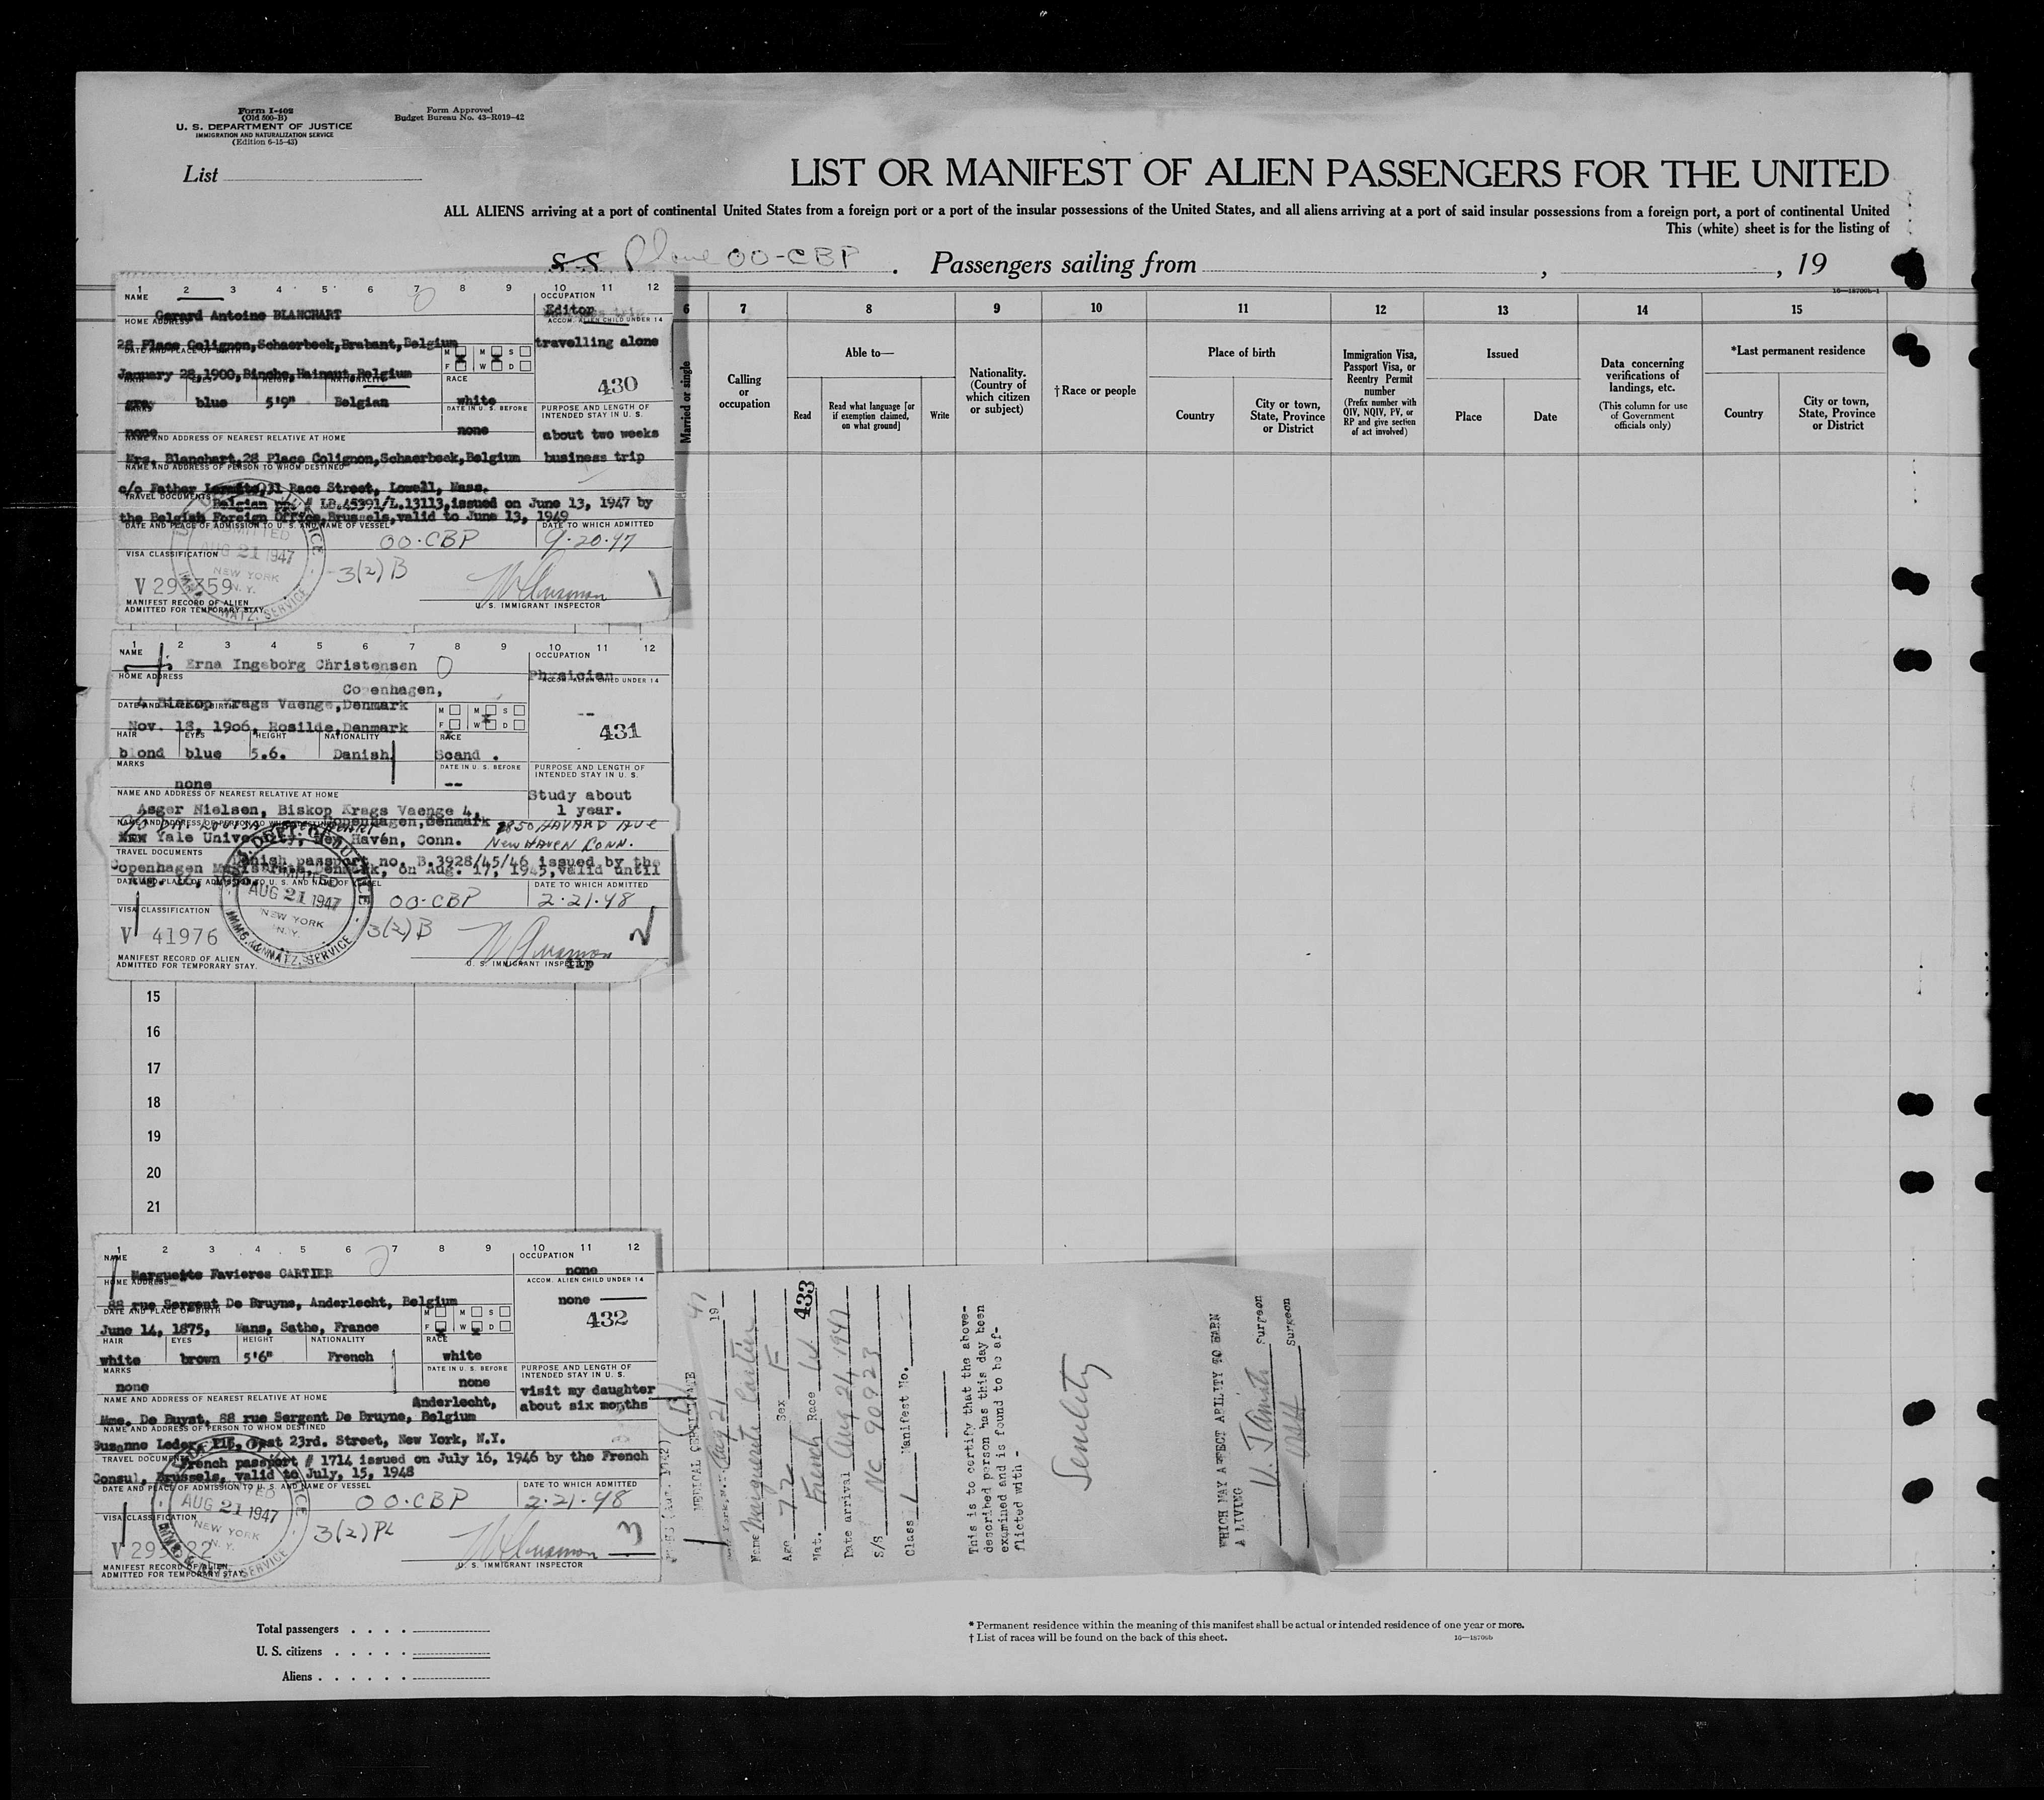 Form I-402
(Old 500-B)
U. S. DEPARTMENT OF JUSTICE
IMMIGRATION AND NATURALIZATION SERVICE
(Edition 6-15-43)
Form Approved
Budget Bureau No. 43-R019-42
List
LIST OR MANIFEST OF ALIEN PASSENGERS FOR THE UNITED
ALL ALIENS arriving at a port of continental United States from a foreign port or a port of the insular possessions of the United States, and all aliens arriving at a port of said insular possessions from a foreign port, a port of continental United
This (white) sheet is for the listing of
S S Plane OO-CBP . Passengers sailing from , , 19
16—18706b-1
6 7 8 9 10 11 12 13 14 15
Married or single
Calling or occupation
Able to—
Read
Read what language [or if exemption claimed, on what ground]
Write
Nationality. (Country of which citizen or subject)
†Race or people
Place of birth
Country
City or town, State, Province or District
Immigration Visa, Passport Visa, or Reentry Permit number
(Prefix number with QIV, NQIV, PV, or RP and give section of act involved)
Issued
Place
Date
Data concerning verifications of landings, etc.
(This column for use of Government officials only)
*Last permanent residence
Country
City or town, State, Province or District
1 2 3 4 5 6 7 8 9 10 11 12
NAME
Gerard Antoine BLANCHART
OCCUPATION
Editor
HOME ADDRESS
ACCOM. ALIEN CHILD UNDER 14
28 Place Colignon,Schaerbeek,Brabant,Belgium
travelling alone
DATE AND PLACE OF BIRTH
M M S
F W D
January 28,1900,Binche,Hainaut,Belgium
430
HAIR EYES HEIGHT NATIONALITY RACE
gray blue 5'9" Belgian white
MARKS
DATE IN U. S. BEFORE
PURPOSE AND LENGTH OF INTENDED STAY IN U. S.
none
none
about two weeks
NAME AND ADDRESS OF NEAREST RELATIVE AT HOME
Mrs. Blanchart,28 Place Colignon,Schaerbeek,Belgium
business trip
NAME AND ADDRESS OF PERSON TO WHOM DESTINED
c/o Father 31 Race Street, Lowell, Mass.
TRAVEL DOCUMENTS
Belgian pp. # LB.45391/L.13113,issued on June 13, 1947 by
the Belgish Foreign Office,Brussels,valid to June 13, 1949
DATE AND PLACE OF ADMISSION TO U. S. AND NAME OF VESSEL
DATE TO WHICH ADMITTED
OO-CBP
9-20-47
ADMITTED
AUG 21 1947
NEW YORK
N. Y.
VISA CLASSIFICATION
3(2)B
V 293359
1
MANIFEST RECORD OF ALIEN
ADMITTED FOR TEMPORARY STAY.
U. S. IMMIGRANT INSPECTOR
1 2 3 4 5 6 7 8 9 10 11 12
NAME
Erna Ingeborg Christensen
OCCUPATION
Physician
HOME ADDRESS
ACCOM. ALIEN CHILD UNDER 14
Copenhagen,
4 Biskop Krags Vaenge,Denmark
DATE AND PLACE OF BIRTH
M M S
F W D
--
Nov. 18, 1906, Rosilde,Denmark
431
HAIR EYES HEIGHT NATIONALITY RACE
blond blue 5.6. Danish Scand .
MARKS
DATE IN U. S. BEFORE
PURPOSE AND LENGTH OF INTENDED STAY IN U. S.
none
--
NAME AND ADDRESS OF NEAREST RELATIVE AT HOME
Study about
1 year.
Asger Nielsen, Biskop Krags Vaenge 4,
Copenhagen,Denmark
NAME AND ADDRESS OF PERSON TO WHOM DESTINED
Yale University, New Haven, Conn.
NEW HAVEN CONN.
TRAVEL DOCUMENTS
Danish passport no. B.3928/45/46 issued by the
Copenhagen Magistrate,Denmark, on Aug. 17, 1945,valid until
DATE AND PLACE OF ADMISSION TO U. S. AND NAME OF VESSEL
DATE TO WHICH ADMITTED
AUG 21 1947
OO-CBP
2-21-48
NEW YORK
N. Y.
IMMIG. & NATZ. SERVICE
VISA CLASSIFICATION
3(2)B
V 41976
2
MANIFEST RECORD OF ALIEN
ADMITTED FOR TEMPORARY STAY.
U. S. IMMIGRANT INSPECTOR
15
16
17
18
19
20
21
1 2 3 4 5 6 7 8 9 10 11 12
NAME
Marguerite Favieres CARTIER
OCCUPATION
none
HOME ADDRESS
ACCOM. ALIEN CHILD UNDER 14
88 rue Sergent De Bruyne, Anderlecht, Belgium
none
DATE AND PLACE OF BIRTH
M M S
F W D
432
June 14, 1875, Mans, Sathe, France
HAIR EYES HEIGHT NATIONALITY RACE
white brown 5'6" French white
MARKS
DATE IN U. S. BEFORE
PURPOSE AND LENGTH OF INTENDED STAY IN U. S.
none
none
visit my daughter
about six months
NAME AND ADDRESS OF NEAREST RELATIVE AT HOME
Anderlecht,
Mme. De Buyst, 88 rue Sergent De Bruyne, Belgium
NAME AND ADDRESS OF PERSON TO WHOM DESTINED
Suzanne Leder, West 23rd. Street, New York, N.Y.
TRAVEL DOCUMENTS
French passport # 1714 issued on July 16, 1946 by the French
Consul, Brussels, valid to July, 15, 1948
DATE AND PLACE OF ADMISSION TO U. S. AND NAME OF VESSEL
DATE TO WHICH ADMITTED
AUG 21 1947
OO-CBP
2-21-48
NEW YORK
N. Y.
VISA CLASSIFICATION
3(2)PL
3
MANIFEST RECORD OF ALIEN
ADMITTED FOR TEMPORARY STAY.
U. S. IMMIGRANT INSPECTOR
MEDICAL CERTIFICATE
New York, N.Y. Aug 21 1947
Name Marguerite Cartier
Age 72 Sex F
Nat. French Race W 433
Date arrival Aug 21, 1947
S/S NC 90923
Class 1 Manifest No.
This is to certify that the above-
described person has this day been
examined and is found to be af-
flicted with -
Senility
WHICH MAY AFFECT ABILITY TO EARN
A LIVING
Surgeon
Surgeon
Total passengers . . . .
U. S. citizens . . . . .
Aliens . . . . . .
* Permanent residence within the meaning of this manifest shall be actual or intended residence of one year or more.
† List of races will be found on the back of this sheet.
16—18706b